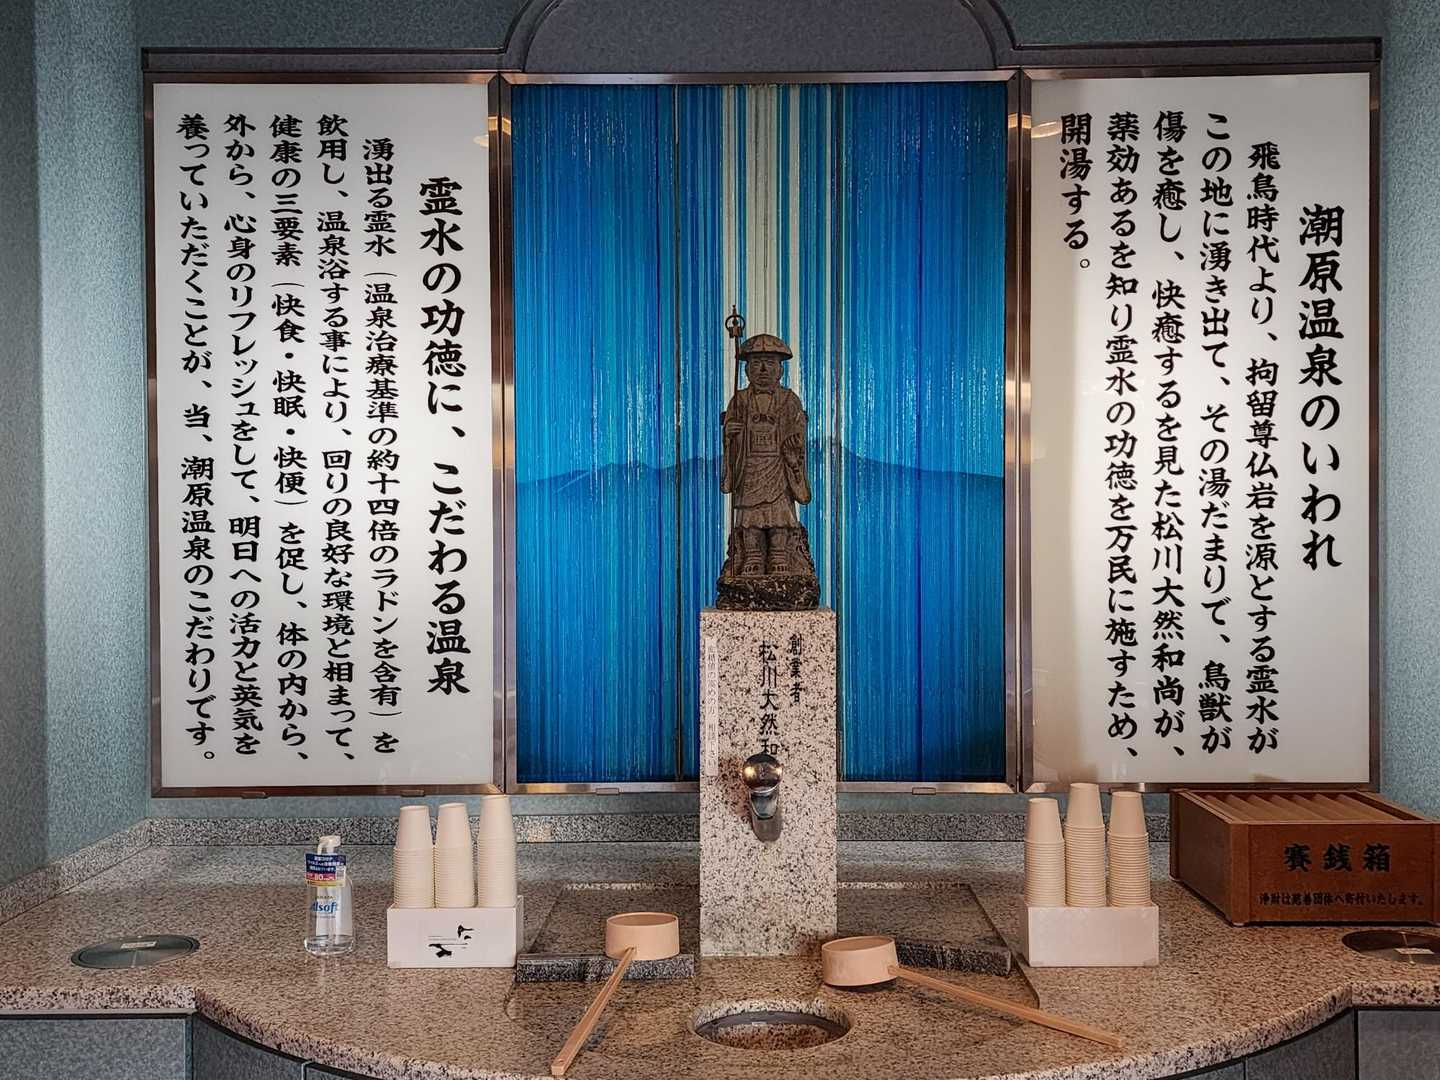 潮原温泉のいわれ
飛鳥時代より、拘留尊仏岩を源とする霊水が
この地に湧き出て、その湯だまりで、鳥獣が
傷を癒し、快癒するを見た松川大然和尚が、
薬効あるを知り霊水の功徳を万民に施すため、
開湯する。
創業者
松川大然和
霊水の功徳に、こだわる温泉
湧出る霊水（温泉治療基準の約十四倍のラドンを含有）を
飲用し、温泉浴する事により、回りの良好な環境と相まって、
健康の三要素（快食・快眠・快便）を促し、体の内から、
外から、心身のリフレッシュをして、明日への活力と英気を
養っていただくことが、当、潮原温泉のこだわりです。
賽銭箱
浄財は慈善団体へ寄付いたします。